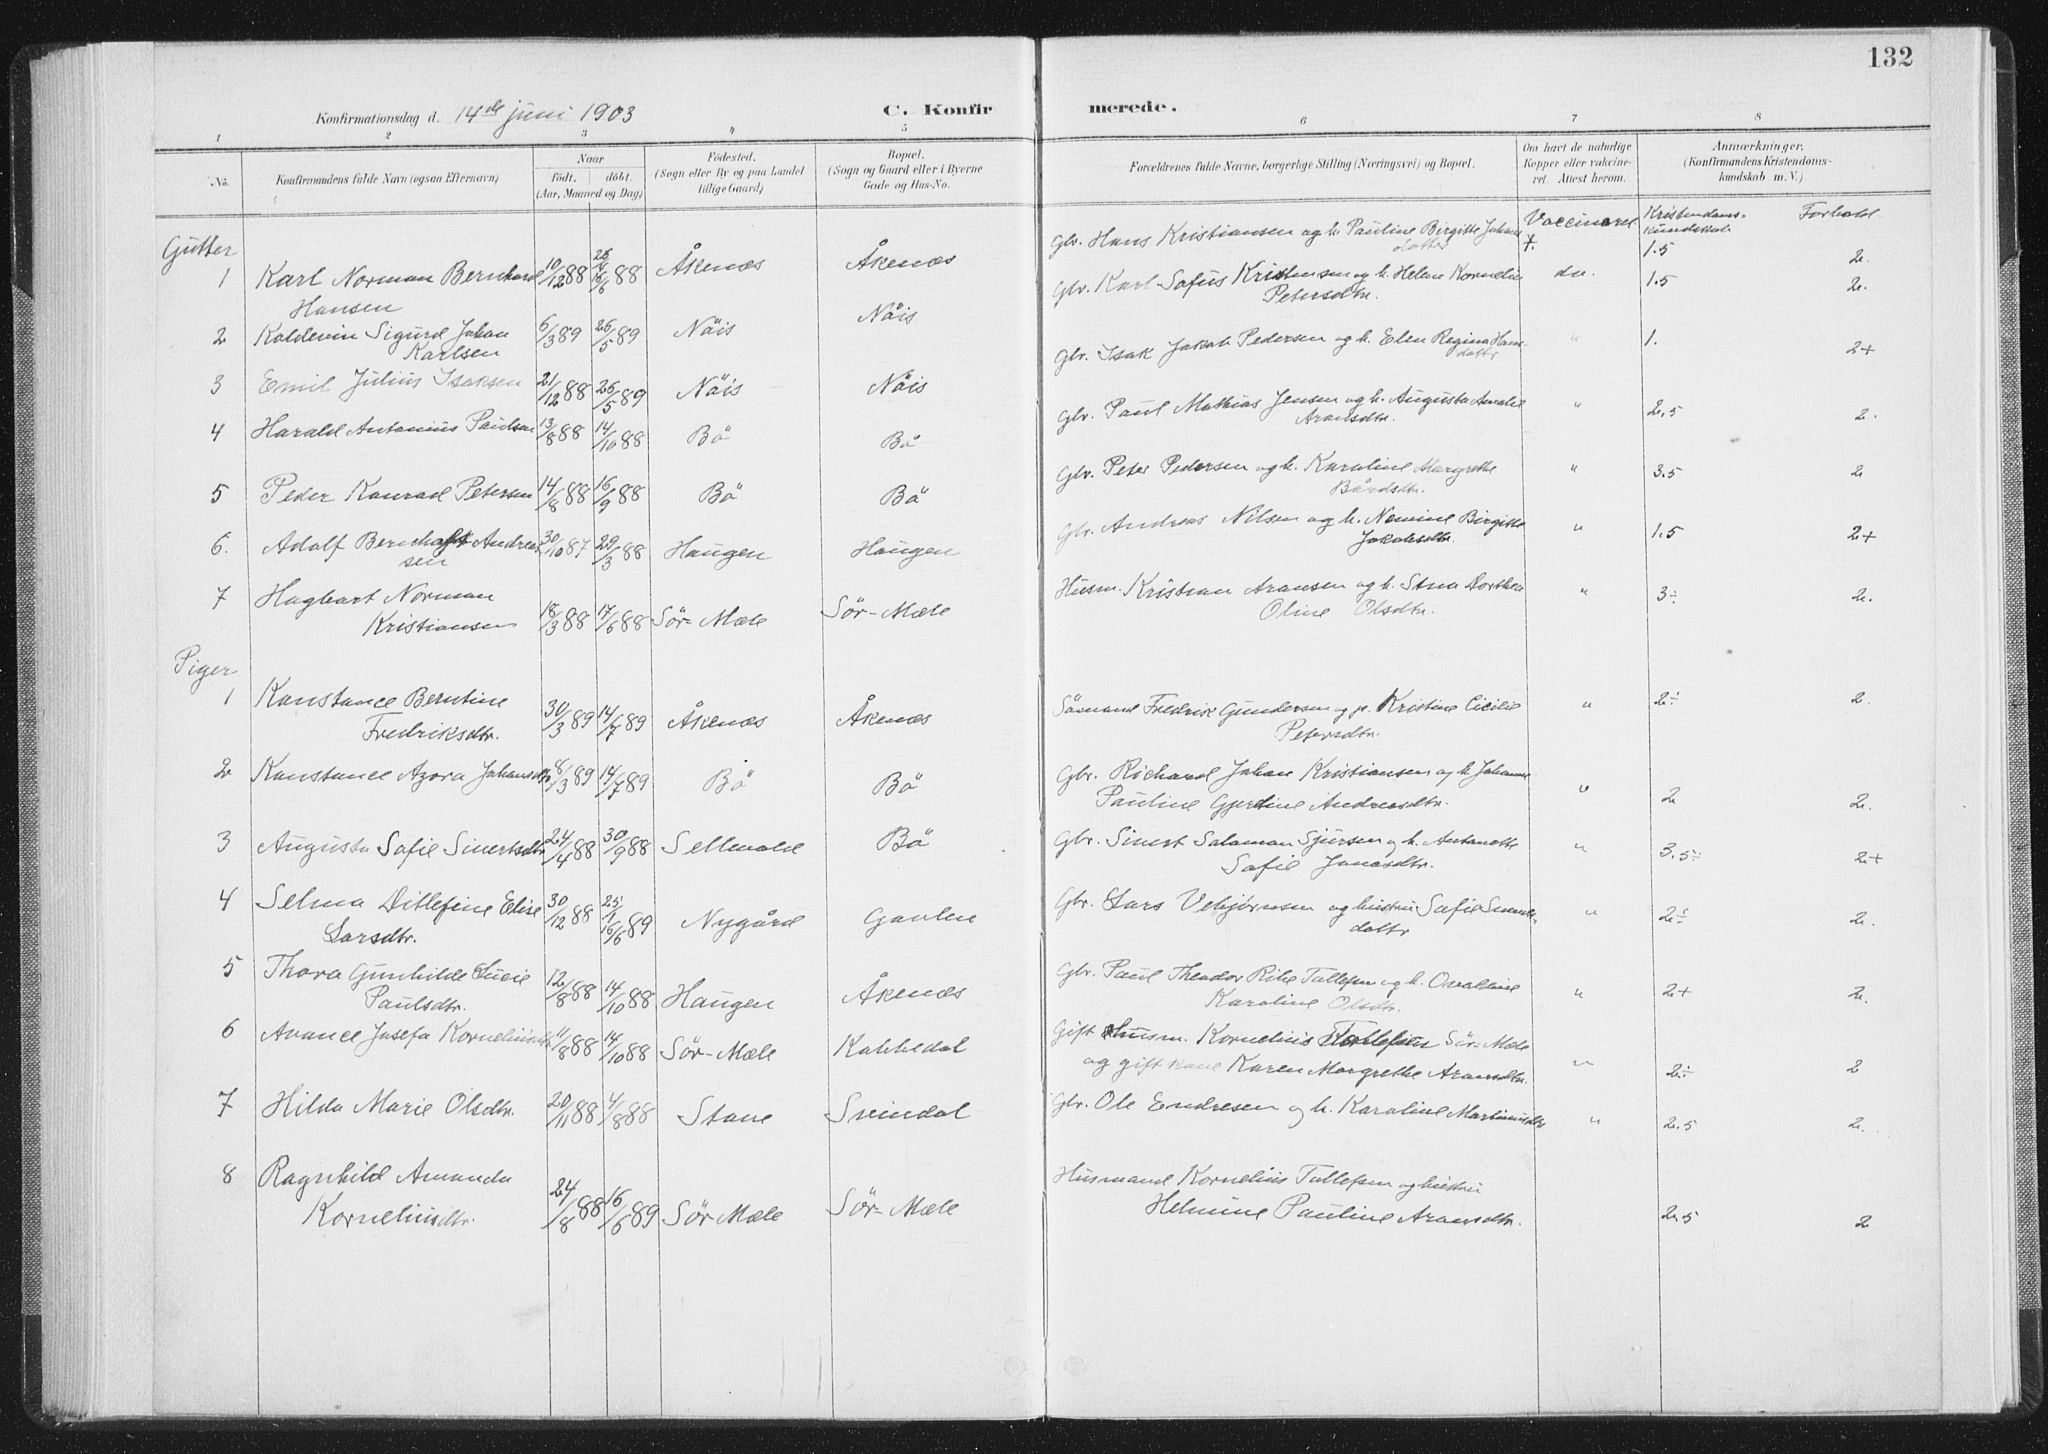 132
Konfirmationsdag d. 14de juni 1903
C. Konfirmerede.
1 2 3 " 5 6 7 8
No. Konfirmandens fulde Navn (ogsaa Efternavn) Naar født. døbt. (Aar, Maaned og Dag) Fødested. (Sogn eller By og paa Landet tillige Gaard) Bopæl. (Sogn og Gaard eller i Byerne Gade og Hus-No. Forældrenes fulde Navne, borgerlige Stilling (Næringsvei) og Bopæl. Om havt de naturlige Kopper eller vaccineret. Attest herom. Anmærkninger. (Konfirmandens Kristendomskundskab m. V.)
Kristendomskundskab Forhold
Gutter
1 Karl Norman Bernhard Hansen 10/12 88 16/6 88 Åkenæs Åkenæs Gbr. Hans Kristiansen og h. Pauline Birgitte Johansdotter Vaccineret 1.5 2.
2 Koldevin Sigurd Johan Karlsen 6/3 89 26/5 89 Nöis Nöis Gbr. Karl Sofus Kristensen og h. Helene Kornelia Petersdtr. do. 1.5 2.
3 Emil Julius Isaksen 21/12 88 26/5 89 Nöis Nöis Gbr. Isak Jakob Pedersen og h. Elen Regina Hansdattr " 1. 2+
4 Harald Antonius Paulsen 13/8 88 14/10 88 Bö Bö Gbr. Paul Mathias Jensen og h. Augusta Amalie Aronsdtr. " 2.5 2.
5 Peder Konrad Petersen 14/8 88 16/9 88 Bö Bö Gbr. Peter Pedersen og h. Karoline Margrethe Bårdsdtr. " 3.5 2
6. Adolf Andreassen 30/10 87 29/3 88 Haugen Haugen Gbr. Andreas Nilsen og h. Birgitte Jakobsdtr. " 1.5 2+
7 Hagbart Norman Kristiansen 18/3 88 17/6 88 Sör-Mæle Sör-Mæle Husm. Kristian Aronsen og h. Stina Dorthea Oline Olsdtr. " 3÷ 2.
Piger
1 Konstance Berntine Fredriksdtr. 30/3 89 14/7 89 Åkenæs Åkenæs Sömand Fredrik Gundersen og p. Kristine Cicilie Petersdtr. " 2÷ 2.
2 Konstance Azora Johansdtr 8/3 89 14/7 89 Bö Bö Gbr. Richard Johan Kristiansen og h. Johanne Pauline Gjertine Andreasdtr. " 2 2.
3 Augusta Sofie Sivertsdtr. 24/4 88 30/9 88 Sellevold Bö Gbr. Sivert Salamon Sjursen og h. Antonette Sofie Jonasdtr. " 3.5÷ 2+
4 Selma Ditlefine Elise Larsdtr. 30/12 88 16/6 89 Nygård Ganlen Gbr. Lars Vebjørnsen og hustru Sofie dattr " 2÷ 2.
5 Thora Gunhilde Lucie Paulsdtr. 12/8 88 14/10 88 Haugen Åkenæs Gbr. Paul Theodor Tollefsen og h. Karoline Olsdtr. " 2+ 2.
6 Avance Josefa Korneliusdtr 11/8 88 14/10 88 Sör-Mæle Kobbedal Gift husm. Kornelius Tollefsen Sör-Mæle og gift kone Karen Margrethe Aronsdtr. " 2÷ 2
7 Hilda Marie Olsdtr. 20/11 88 4/8 88 Stave Svindal Gbr. Ole Endresen og h. Karoline Martinusdtr " 2.5 2.
8 Ragnhild Amanda Korneliusdtr. 24/8 88 16/6 89 Sör Mæle Sör-Mæle Husmand Kornelius Tollefsen og hustru Helmine Pauline Aronsdtr. 2.5 2